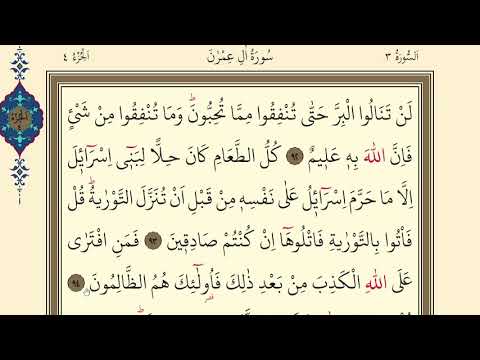 اَلسُّورَةُ ٣
سُورَةُ اٰلِ عِمْرٰنَ
اَلْجُزْءُ ٤
لَنْ تَنَالُوا الْبِرَّ حَتّٰى تُنْفِقُوا مِمَّا تُحِبُّونَۜ وَمَا تُنْفِقُوا مِنْ شَيْءٍ
فَاِنَّ اللّٰهَ بِه۪ عَل۪يمٌ ﴿٩٢﴾ كُلُّ الطَّعَامِ كَانَ حِلًّا لِبَن۪ٓى اِسْرَٓاء۪يلَ
اِلَّا مَا حَرَّمَ اِسْرَٓاء۪يلُ عَلٰى نَفْسِه۪ مِنْ قَبْلِ اَنْ تُنَزَّلَ التَّوْرٰيةُۜ قُلْ
فَأْتُوا بِالتَّوْرٰيةِ فَاتْلُوهَٓا اِنْ كُنْتُمْ صَادِق۪ينَ ﴿٩٣﴾ فَمَنِ افْتَرٰى
عَلَى اللّٰهِ الْكَذِبَ مِنْ بَعْدِ ذٰلِكَ فَاُو۬لٰٓئِكَ هُمُ الظَّالِمُونَ ﴿٩٤﴾